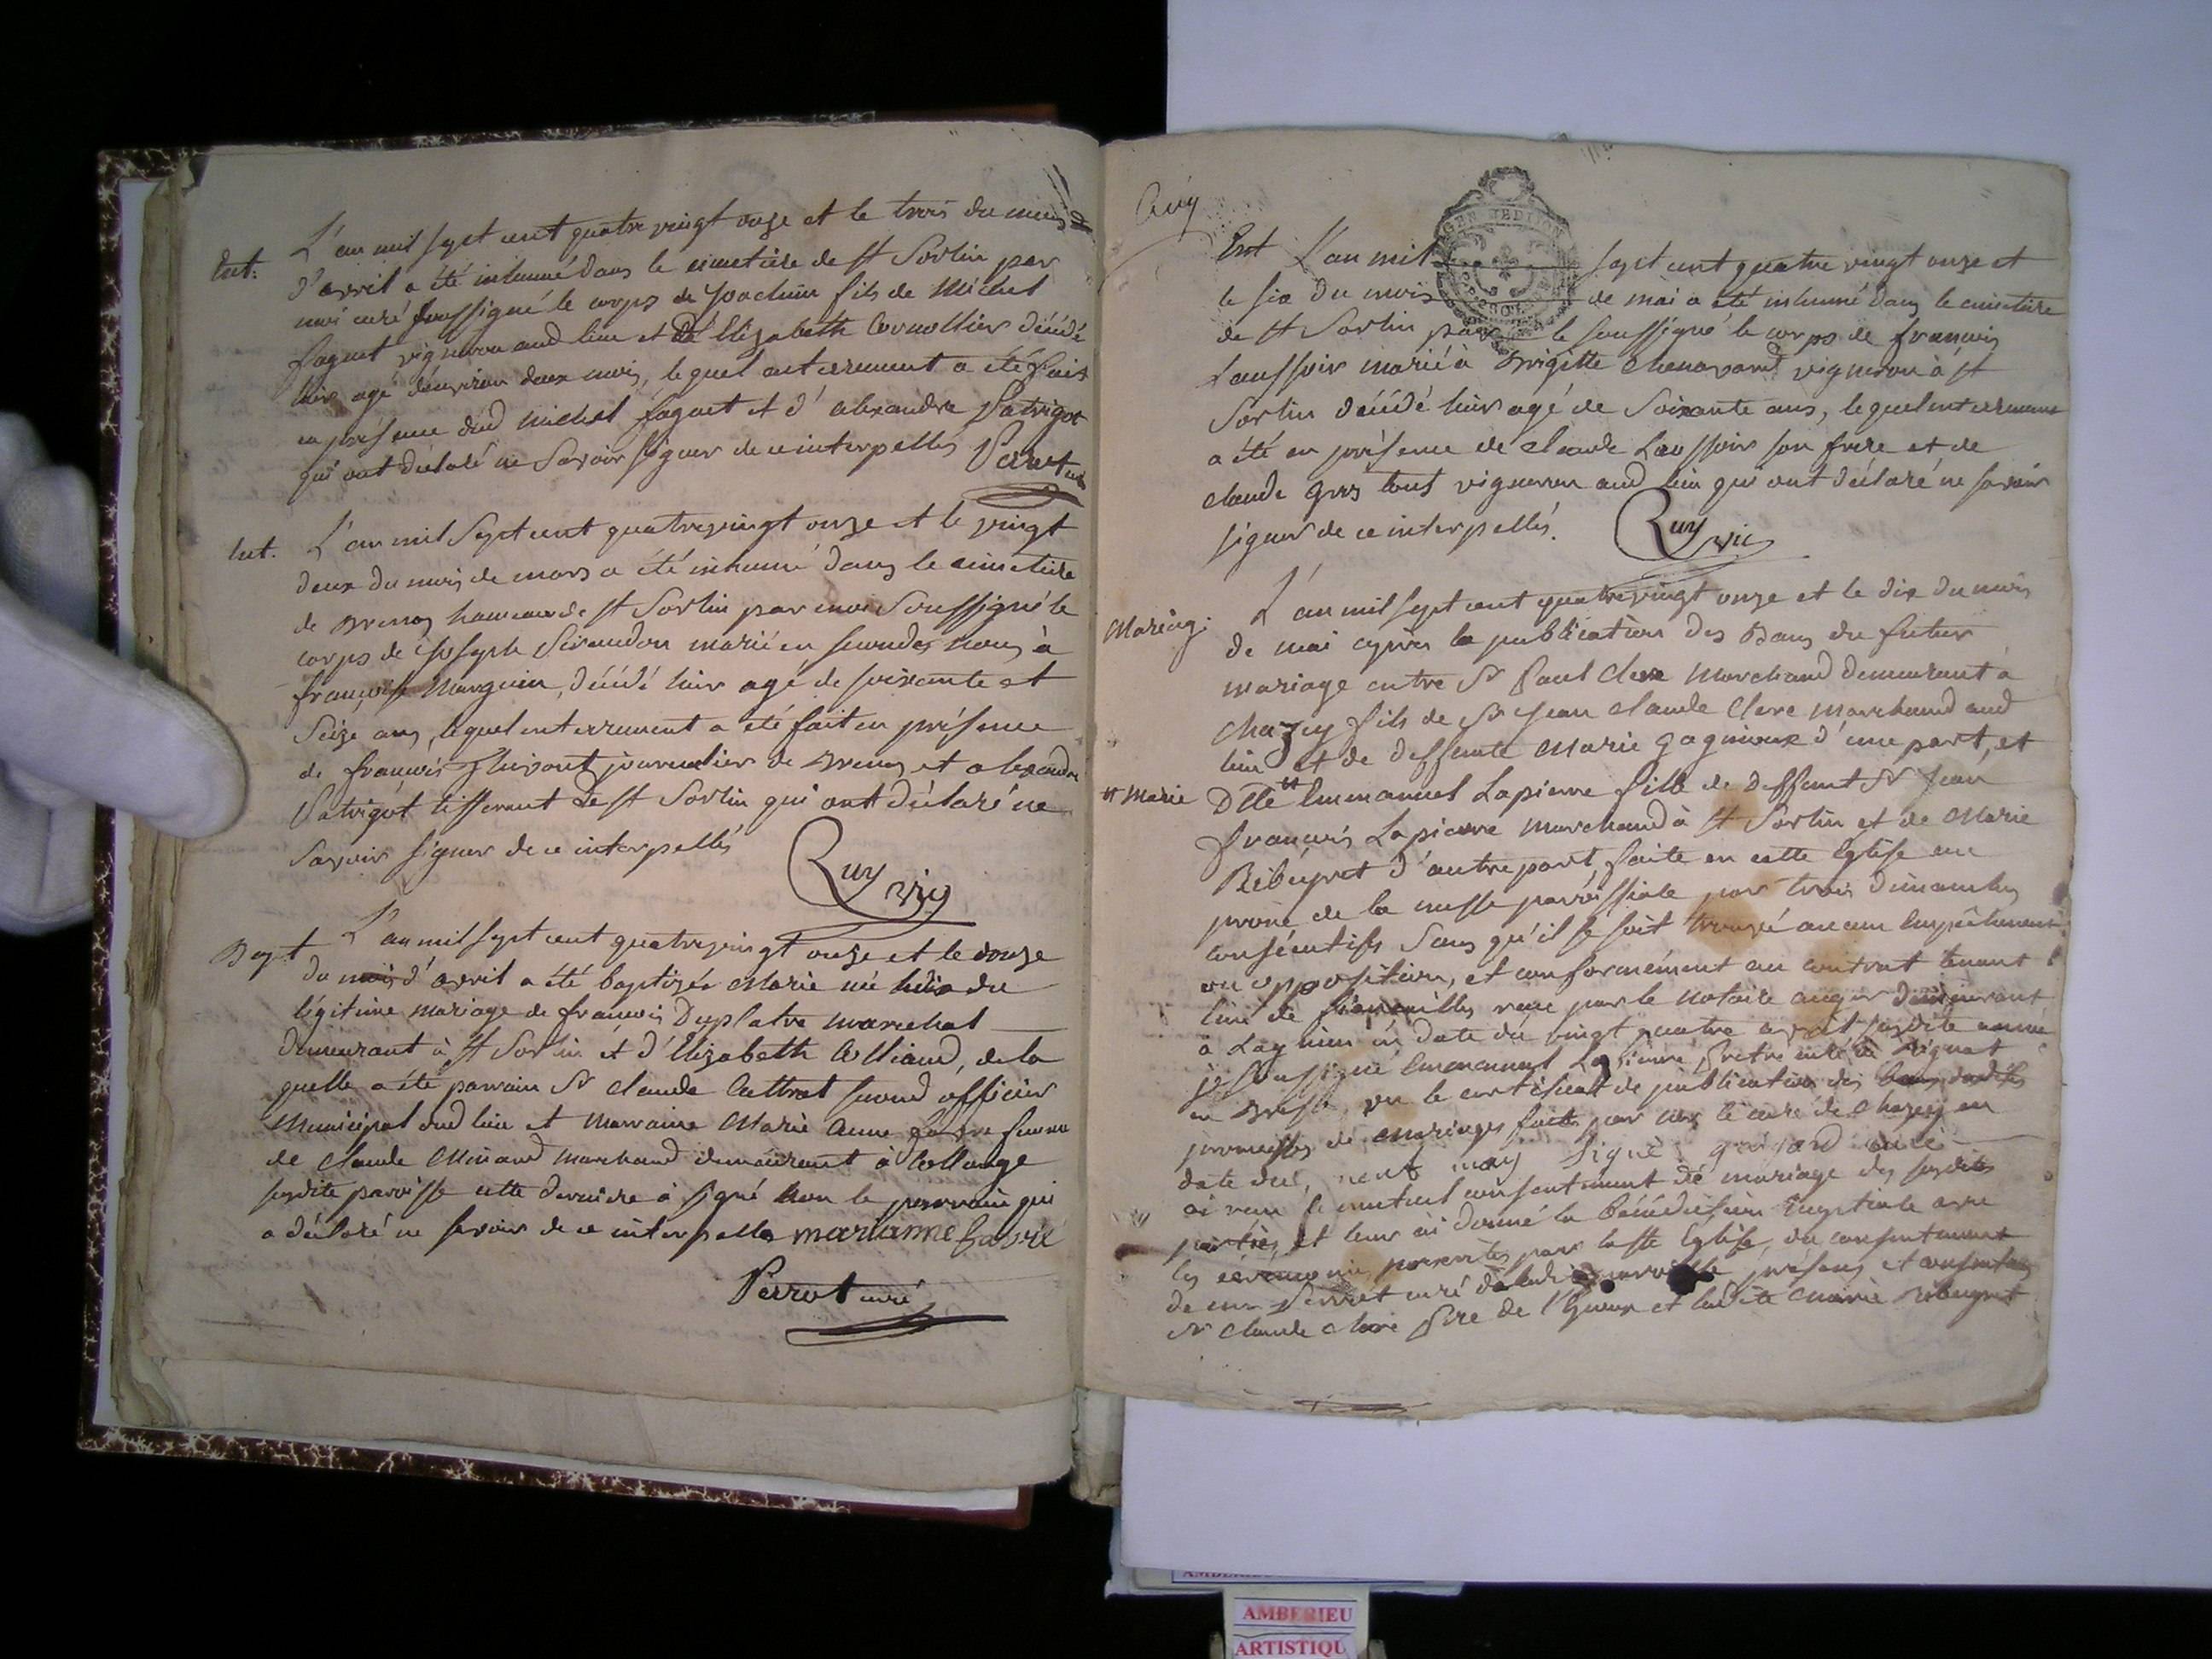 Ent.
L'an mil sept cent quatre vingt onze et le trois du mois
d'avril a été inhumé dans le cimetiere de st Sorlin par
moi curé soussigné le corps de Joachim fils de Michel
faguet vigneron aud lieu et de Elizabeth Cornollier décédé
hier agé d'environ deux mois, lequel enterrement a été fait
en présence dud michel faguet et d'alexandre Patrigot
qui ont déclaré ne Savoir signer de ce interpellés Perrot
Ent.
L'an mil Sept cent quatrevingt onze et le vingt
deux du mois de mars a été inhumé dans le cimetiere
de hameau de st Sorlin par moi Soussigné le
corps de joseph Sirandon marié en secondes noces à
françoise Manguin, décédé hier agé de soixante et
Seize ans, lequel enterrement a été fait en présence
de françois journalier de et alexandre
Patrigot tisserant de st Sorlin qui ont déclaré ne
Savoir signer de ce interpellés
Ruy vic
Bapt
L'an mil sept cent quatrevingt onze et le douze
du mois d'avril a été baptisée Marie née hier du
légitime mariage de françois Duplatre marechal
demeurant à st Sorlin et d'Elizabeth Colliand, de la
quelle a été parrain Sr claude Cattrat second officier
Municipal dud lieu et Marraine Marie Anne favre femme
de claude Minand marchand demeurant à Collange
susdite paroisse cette derniere à signé non le parrain qui
a déclaré ne savoir de ce interpellés marianne favre
Perrot curé
Ent L'an mil sept cent quatre vingt onze et
le six du mois de mai a été inhumé dans le cimetiere
de st Sorlin par le soussigné le corps de francois
Laussoir marié à Brigitte Chenavard vigneron à st
Sorlin décédé hier agé de Soixante ans, lequel enterrement
a été en présence de claude Laussoir son frere et de
claude gros tous vigneron aud lieu qui ont déclaré ne savoir
signer de ce interpellés.
Ruy vic
Mariag.
L'an mil sept cent quatrevingt onze et le dix du mois
de mai après la publication des Bans du futur
mariage entre Sr Paul Clerc Marchand demeurant à
Chazey fils de Sr Jean claude Clerc marchand aud
lieu et de deffunte Marie gagnieux d'une part, et
Marie
Dlle Emmanuel Lapierre fille de deffunt Sr Jean
françois Lapierre marchand à st Sorlin et de Marie
Ribeyret d'autre part, faite en cette Eglise au
prone de la messe paroissiale par trois dimanches
consécutifs Sans qu'il se soit trouvé aucun Empêchement
ou opposition, et conformément au contrat tenant
lieu de fiancailles recu par le notaire auger demeurant
à Lagnieu en date du vingt quatre avril susdite année
je soussigné Emmanuel Lapierre Pretre curé de
en Bresse, vu le certificat de publication des
promesses de mariages faite par le curé de Chazey en
date du, neuf may Signé curé
ai recu le mutuel consentement de mariage des susdites
parties, et leur ai donné la bénédiction Nuptiale avec
les cérémonies par la ste Eglise, du consentement
de mr Perret curé de ladite paroisse présens et consentans
Sr claude clere Pere de l'Epoux et ladite Marie Ribeyret
AMBERIEU
ARTISTIQU